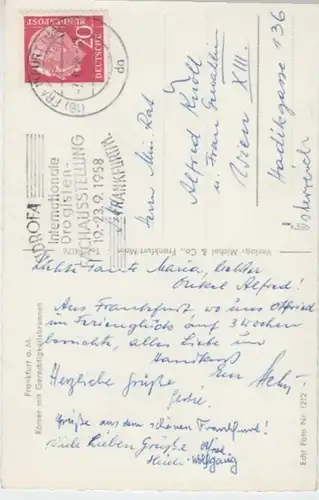 DEUTSCHE
BUNDESPOST
20
(16) FRANKFURT
da
INDROFA
Internationale
Drogisten-
FACHAUSSTELLUNG
19.-23.9.1958
FRANKFURT/M.
Herrn Min. Rat
Alfred
u. Frau Gemahlin
Wien XIII.
Hadikgasse 136
Österreich
Verlag: Michel & Co., Frankfurt-Main
Liebste Tante Maria, liebster
Onkel Alfred!
Aus Frankfurt, wo uns Otfried
im Ferienglück auf 3 Wochen
alles Liebe und
Handkuss
Euer
Herzliche Grüße
Grüße aus dem schönen Frankfurt!
Viele lieben Grüße
Heidi Wolfgang
Frankfurt a. M.
Römer mit Gerechtigkeitsbrunnen
Echt Foto Nr. 1212